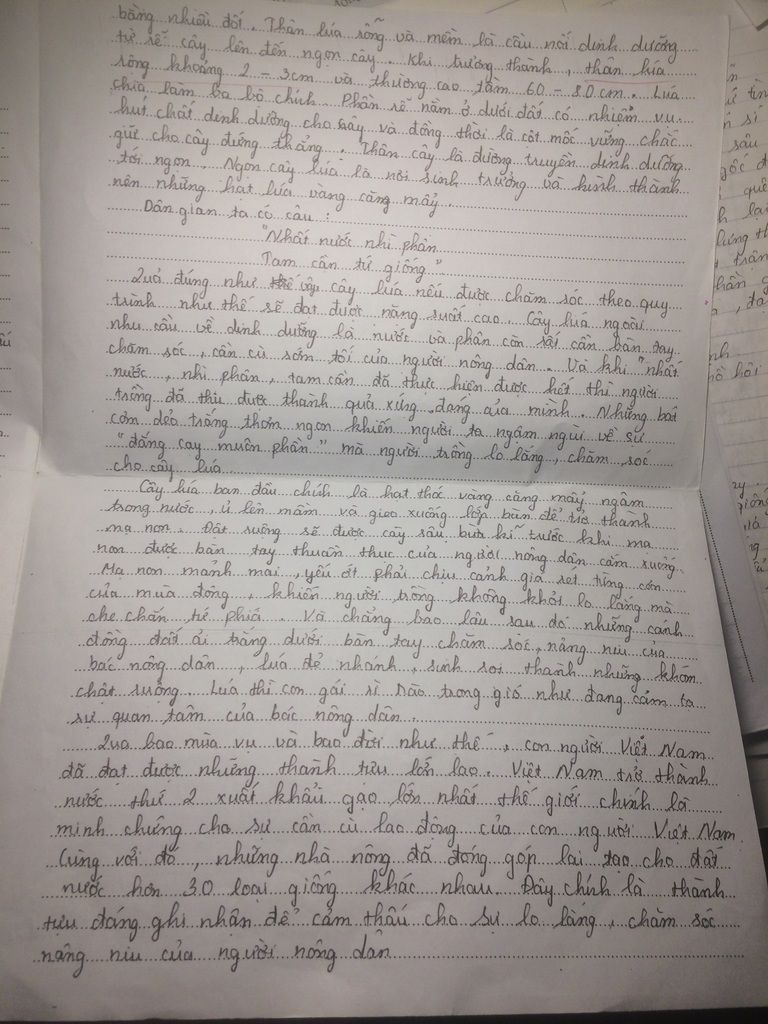 bằng nhiều đốt. Thân lúa rỗng và mềm là cầu nối dinh dưỡng
từ rễ cây lên đến ngọn cây. Khi trưởng thành, thân lúa
rộng khoảng 2 - 3cm và thường cao tầm 60 - 80cm. Lúa
chia làm ba bộ chính. Phần rễ nằm ở dưới đất có nhiệm vụ
hút chất dinh dưỡng cho cây và đồng thời là cột mốc vững chắc
giữ cho cây đứng thẳng. Thân cây là đường truyền dinh dưỡng
tới ngọn. Ngọn cây lúa là nơi sinh trưởng và hình thành
nên những hạt lúa vàng căng mẩy.
Dân gian ta có câu:
"Nhất nước nhì phân
Tam cần tứ giống"
Quả đúng như thế cây lúa nếu được chăm sóc theo quy
trình như thế sẽ đạt được năng suất cao. Cây lúa ngoài
nhu cầu về dinh dưỡng là nước và phân còn rất cần bàn tay
chăm sóc, cần cù sớm tối của người nông dân. Và khi "nhất
nước, nhì phân, tam cần đã thực hiện được hết thì người
trồng đã thu được thành quả xứng đáng của mình. Những bát
cơm dẻo trắng thơm ngon khiến người ta ngậm ngùi về sự
"đắng cay muôn phần" mà người trồng lo lắng, chăm sóc
cho cây lúa
Cây lúa ban đầu chính là hạt thóc vàng căng mẩy ngâm
trong nước, ủ lên mầm và gieo xuống lớp bàn để trở thành
mạ non. Đất ruộng sẽ được cày sâu, bừa kĩ trước khi mạ
non được bàn tay thuần thục của người nông dân cấm xuống
Mạ non mảnh mai, yếu ớt phải chịu cảnh giá rét từng cơn
của mùa đông, khiến người trồng không khỏi lo lắng mà
che chắn tứ phía. Và chẳng bao lâu sau đó những cánh
đồng đất ải trắng dưới bàn tay chăm sóc, nâng niu của
bác nông dân, lúa đẻ nhanh, sinh sôi thành những khóm
chật ruộng. Lúa thì con gái rì rào trong gió như đang cảm tạ
sự quan tâm của bác nông dân.
Qua bao mùa vụ và bao đời như thế, con người Việt Nam
đã đạt được những thành tựu lớn lao. Việt Nam trở thành
nước thứ 2 xuất khẩu gạo lớn nhất thế giới chính là
minh chứng cho sự cần cù lao động của con người Việt Nam
Cùng với đó, những nhà nông đã đóng góp lai tạo cho đất
nước hơn 30 loại giống khác nhau. Đây chính là thành
tựu đáng ghi nhận để cảm thấu cho sự lo lắng, chăm sóc
nâng niu của người nông dân